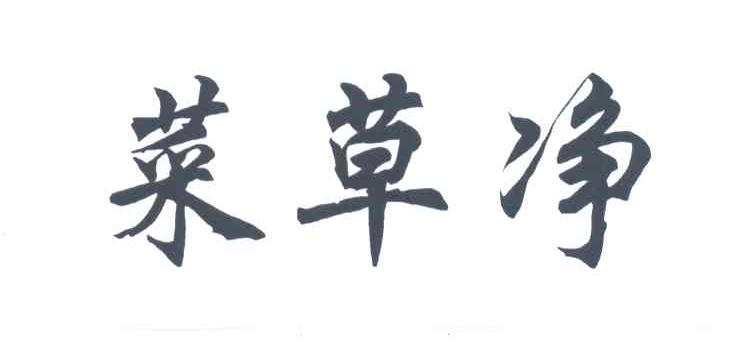 菜草净